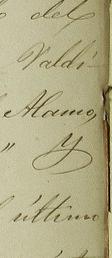 del
Valdi
Alamo,
" y
último